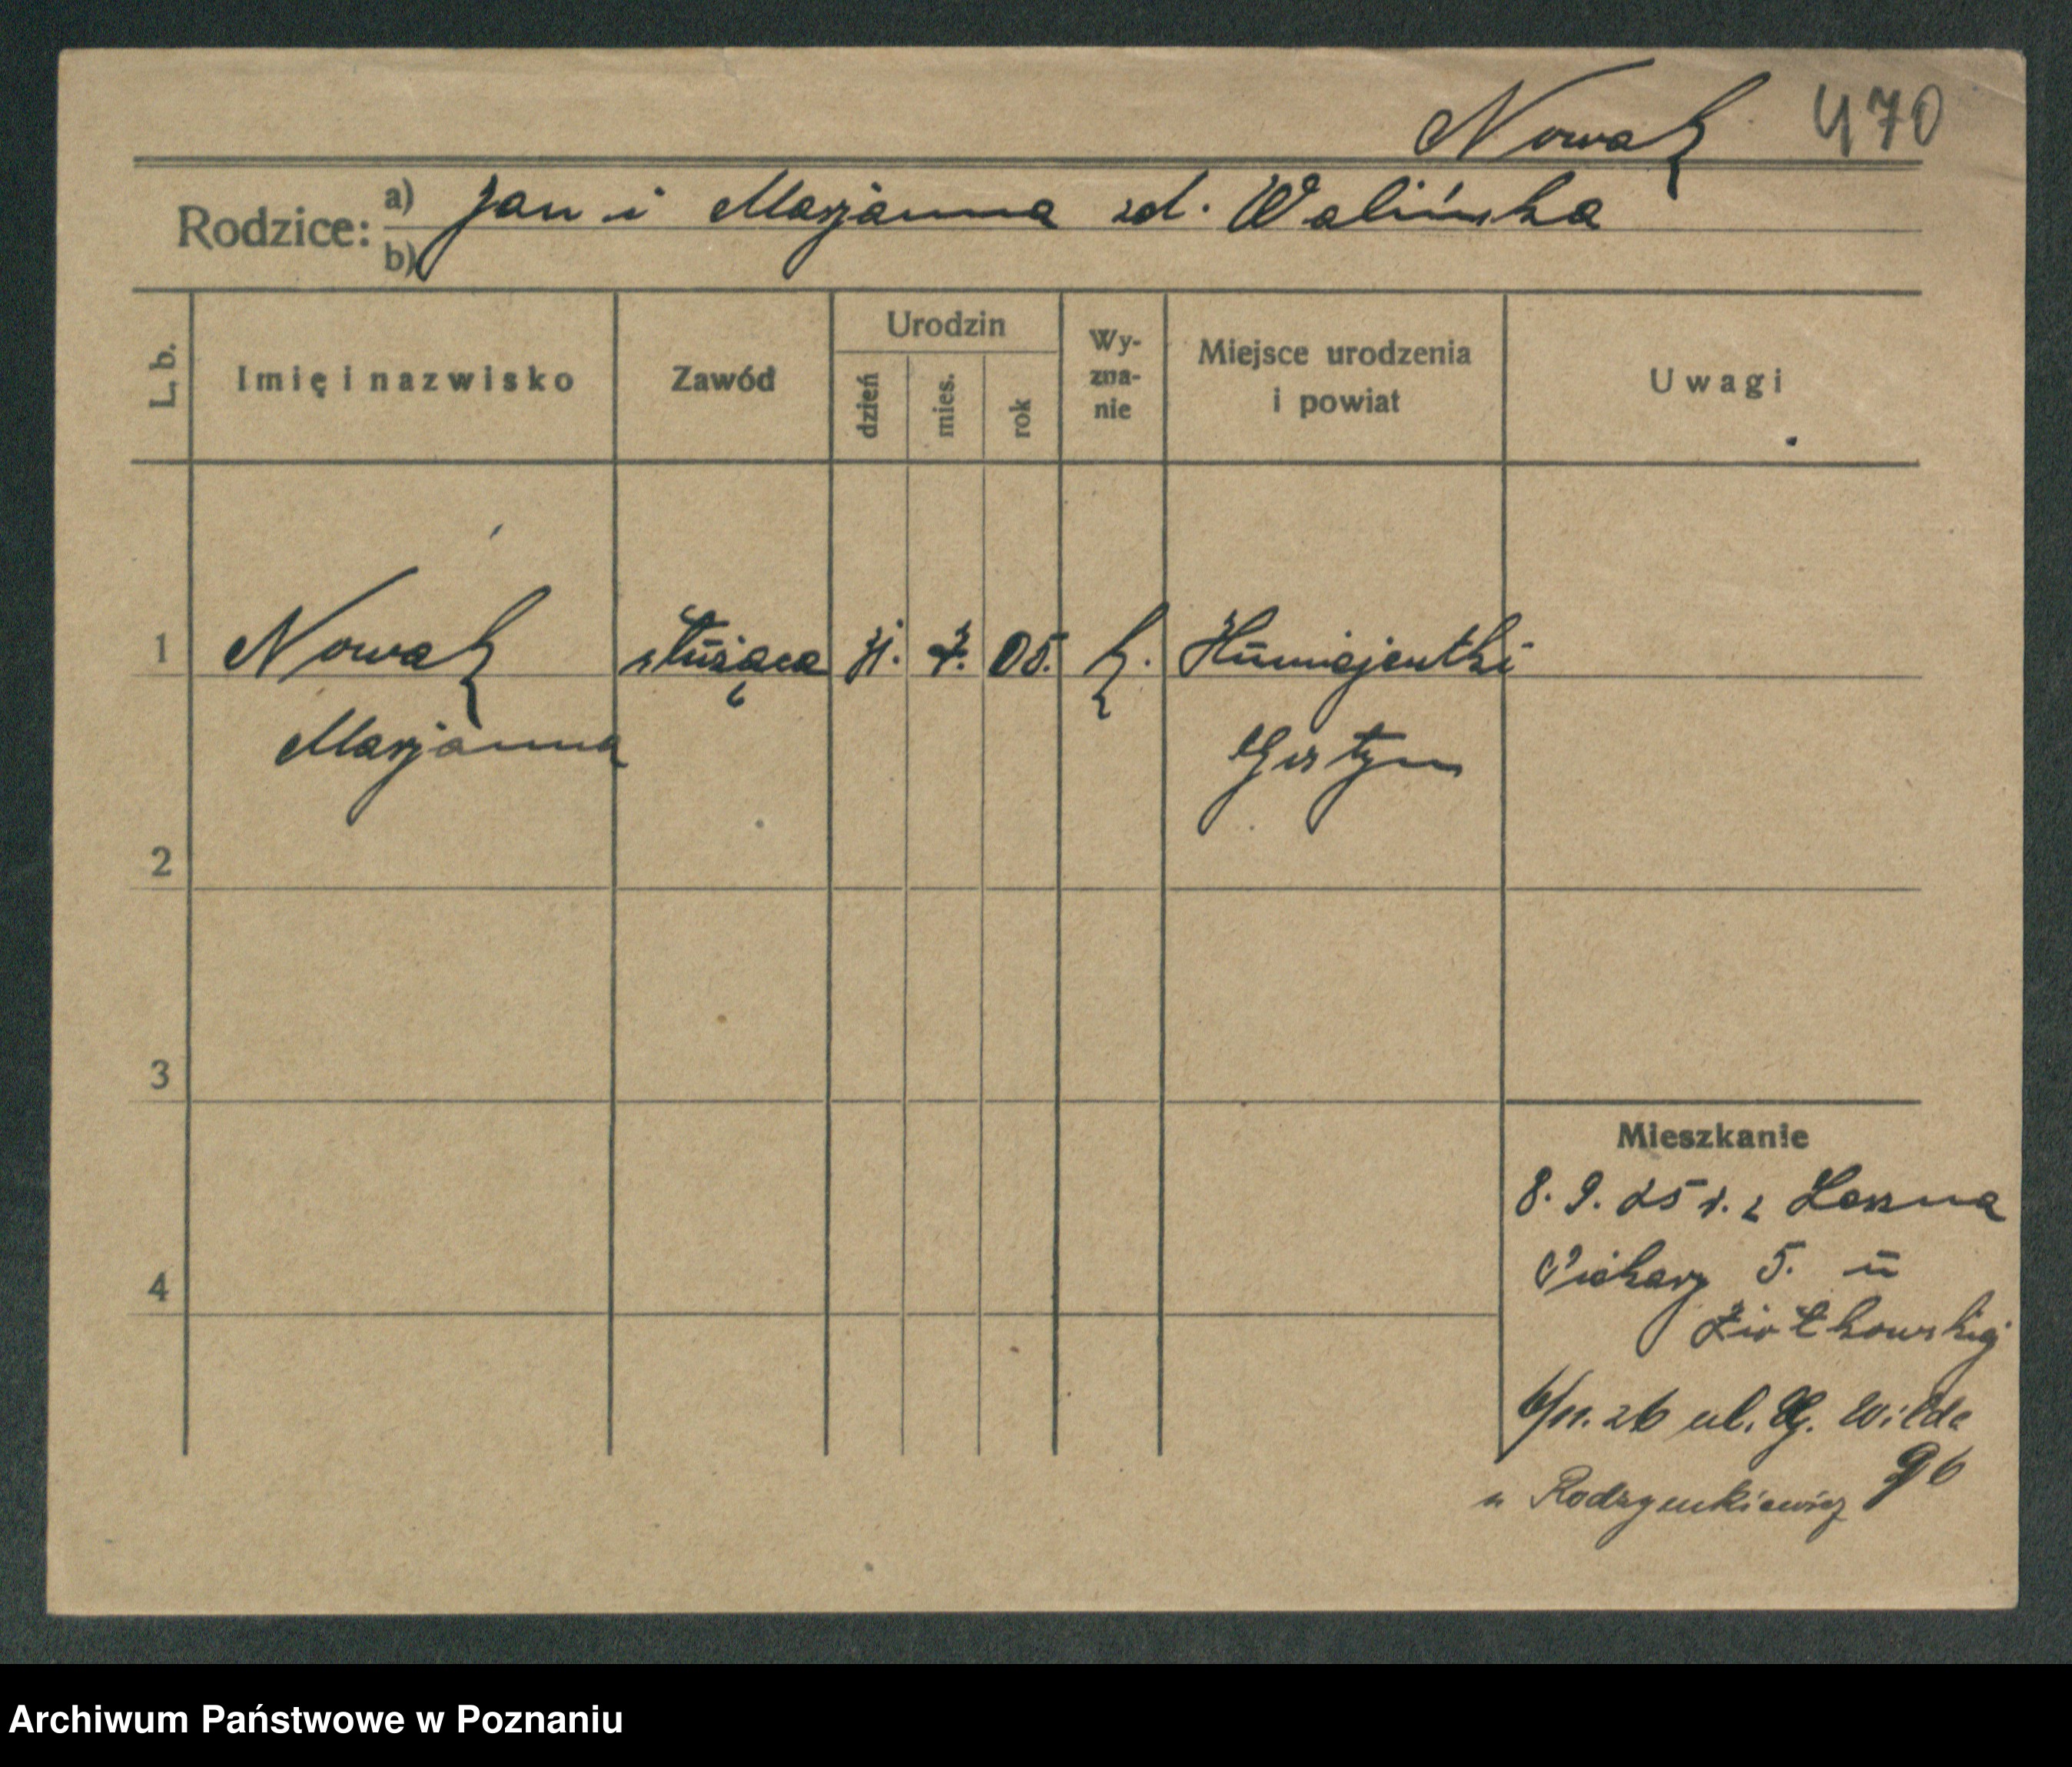 Nowak 470
Rodzice: a) Jan i Marjanna zd. Walińska
b)
L. b.
Imię i nazwisko
Zawód
Urodzin
dzień
mies.
rok
Wy-
zna-
nie
Miejsce urodzenia
i powiat
Uwagi
1 Nowak służąca 31. 7. 05. k. Huminjentki
Marjanna Gostyn
2
3
4
Mieszkanie
8. 9. 25 r. z Leszna
Piekary 5. u
Ziołkowskiej
6/11. 26 ul. G. Wilda
96
u Rodzynkiewicz
Archiwum Państwowe w Poznaniu